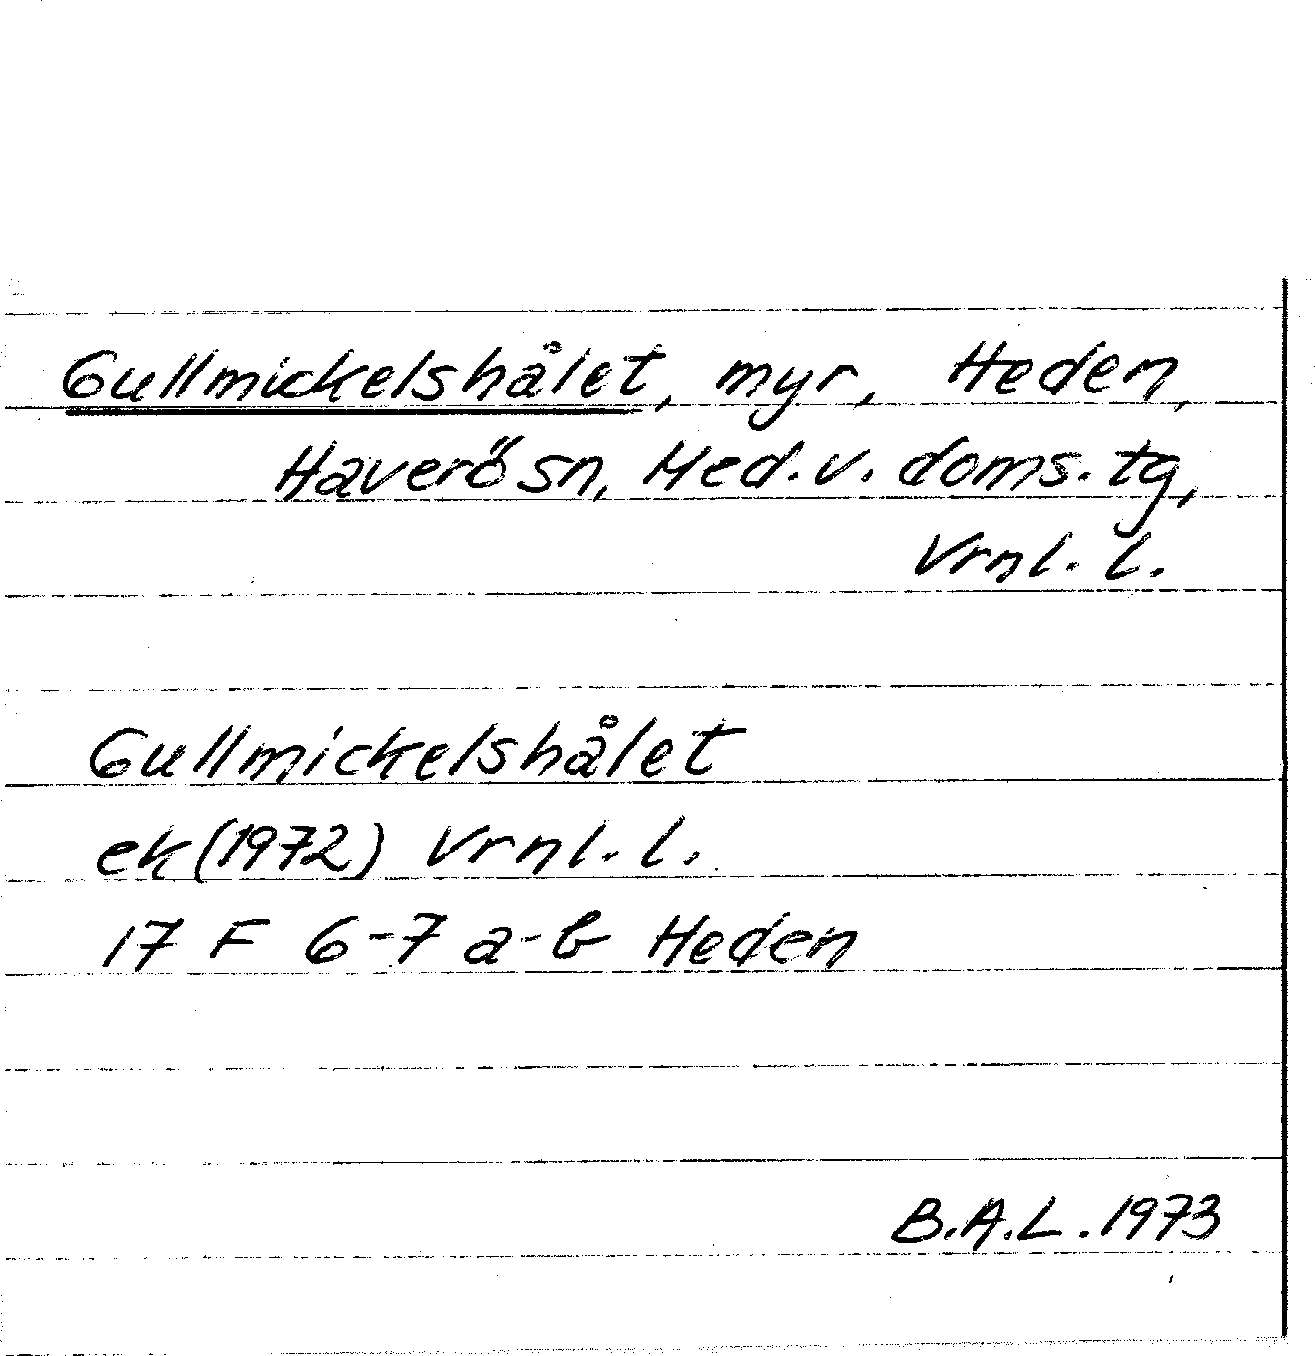 Gullmickelshålet, myr, Heden,
Haverö sn, Med. v. doms. tg,
Vrnl. l.
Gullmickelshålet
ek (1972) Vrnl. l.
17 F 6-7 a-b Heden
B.A.L. 1973